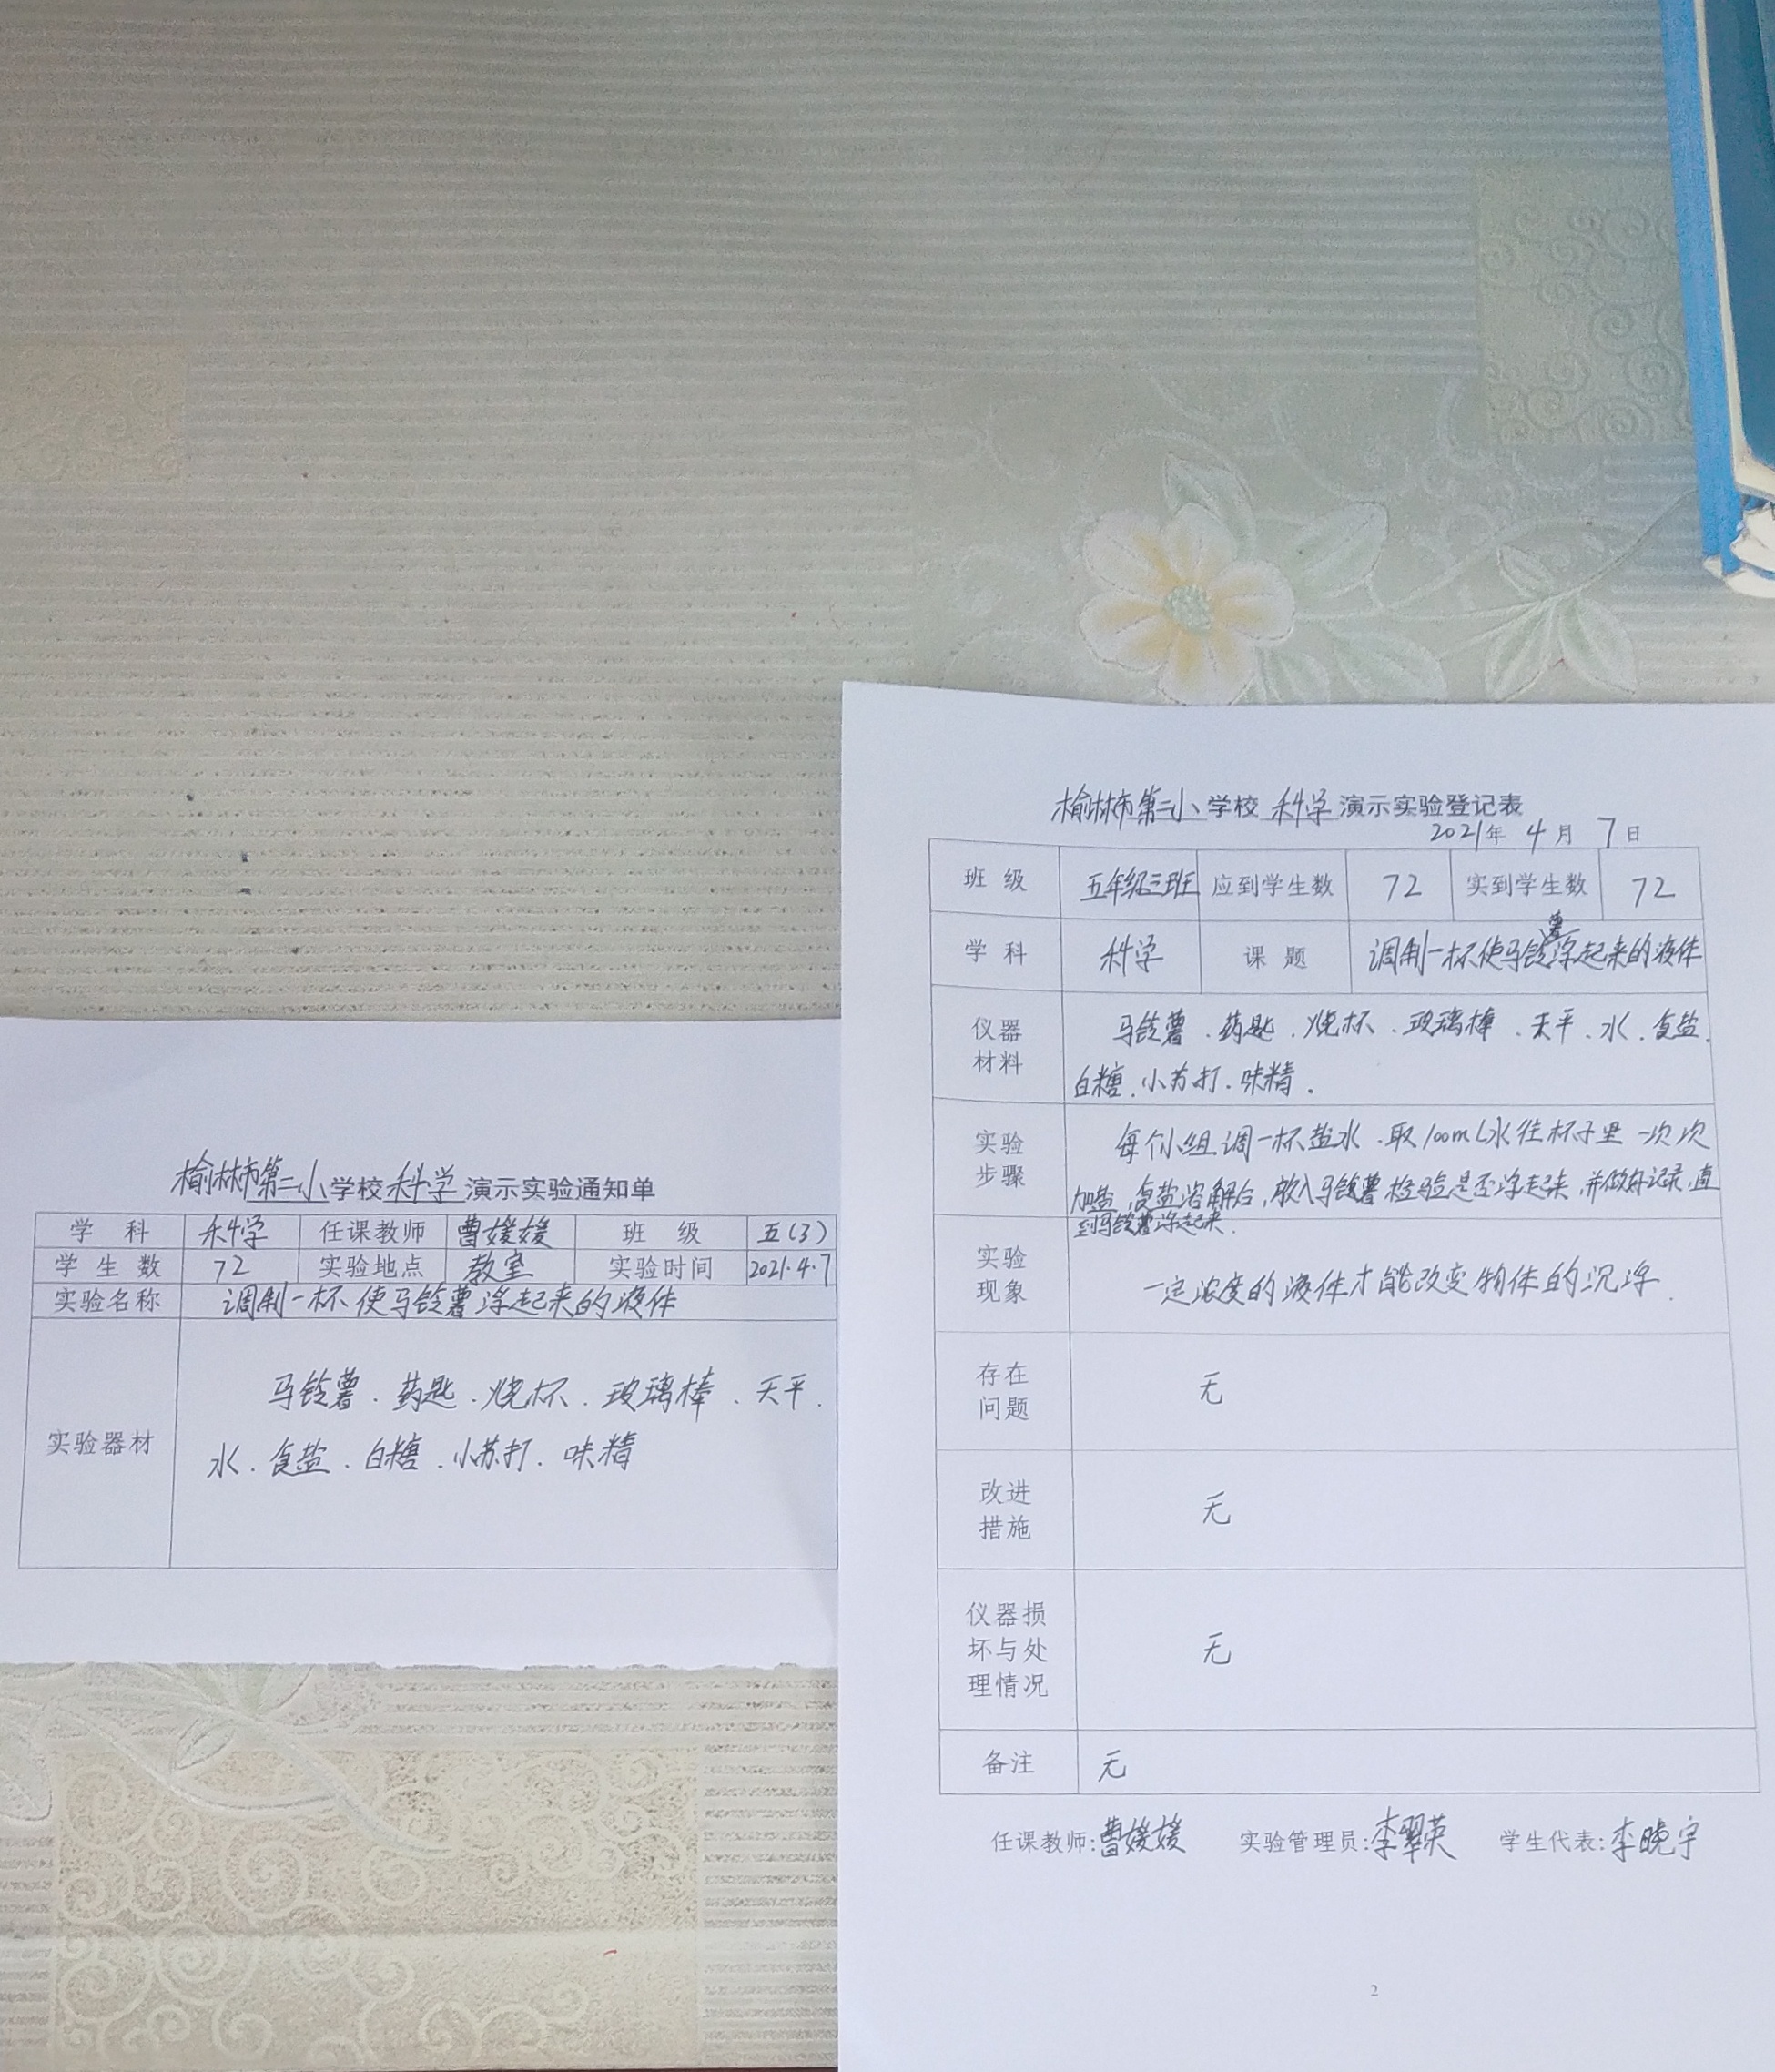 榆林市第二小学校科学演示实验通知单
学 科 科学 任课教师 曹媛媛 班 级 五(3)
学 生 数 72 实验地点 教室 实验时间 2021.4.7
实验名称 调制一杯使马铃薯浮起来的液体
实验器材
马铃薯.药匙.烧杯.玻璃棒.天平.
水.食盐.白糖.小苏打.味精
榆林市第二小学校科学演示实验登记表
2021年4月7日
班 级 五年级三班 应到学生数 72 实到学生数 72
学 科 科学 课 题 调制一杯使马铃薯浮起来的液体
仪器
材料
马铃薯.药匙.烧杯.玻璃棒.天平.水.食盐.
白糖.小苏打.味精.
实验
步骤
每个小组调一杯盐水.取100mL水往杯子里一次次
加盐,食盐溶解后,放入马铃薯检验是否浮起来,并做好记录,直
到马铃薯浮起来.
实验
现象
一定浓度的液体才能改变物体的沉浮.
存在
问题
无
改进
措施
无
仪器损
坏与处
理情况
无
备注 无
任课教师:曹媛媛 实验管理员:李翠英 学生代表:李晓宇
2